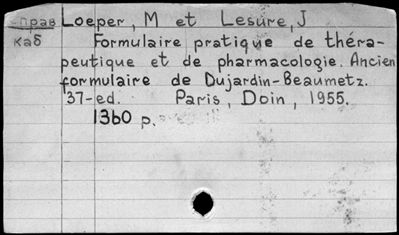 справ Loeper, M et Lesure, J
каб Formulaire pratique de théra-
peutique et de pharmacologie. Ancien
formulaire de Dujardin-Beaumetz.
37-ed. Paris, Doin, 1955.
1360 p.